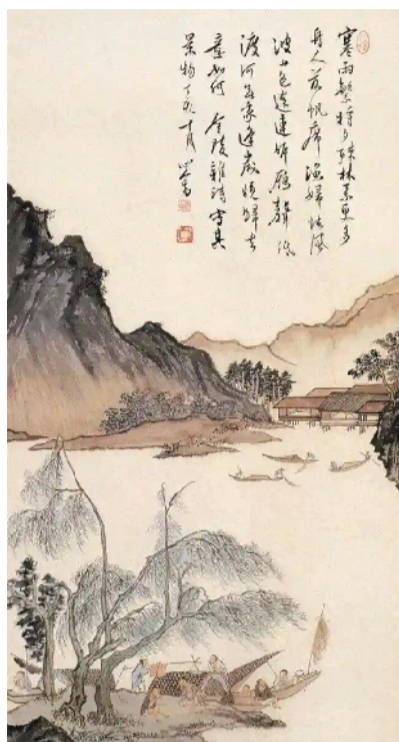 寒雨繁將夕疎林葉更多
舟人落帆席漁婦怯風
波山色遠連雁聲低
渡河無家逢歲晚歸去
意如何 金陵雜詩寫其
景物丁亥十月 心畬